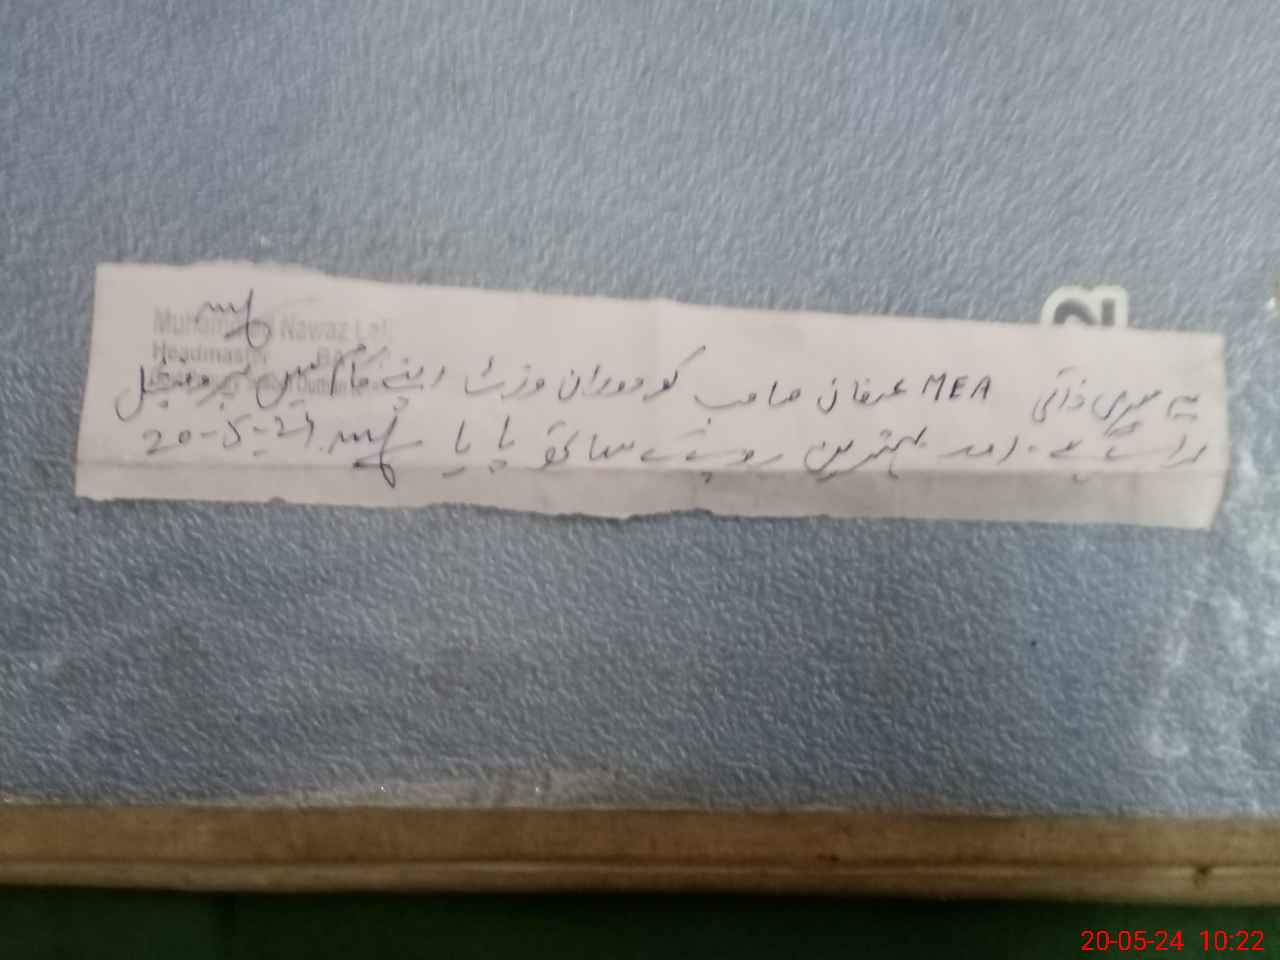 Muhammad Nawaz
Headmaster
یہ میری ذاتی MEA عرفان صاحب کو دوران وزٹ اپنے کام میں پروفیشنل
رائے ہے۔ اور بہترین رویے کے ساتھ پایا 20-5-24
20-05-24 10:22